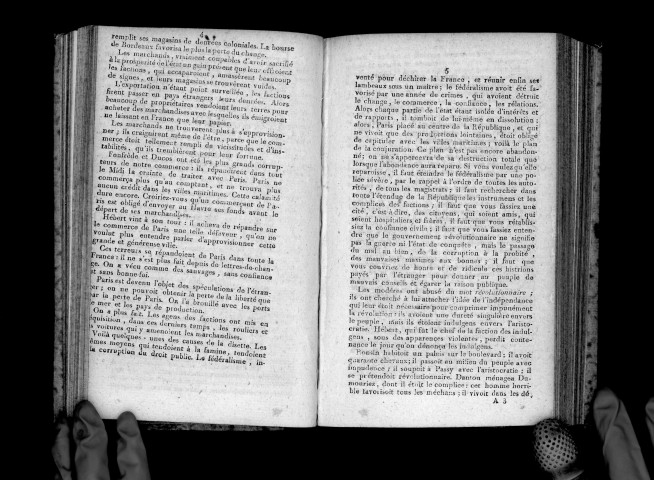 4
remplit ses magasins de denrées coloniales. La bourse
de Bordeaux favorisa le plus la perte du change.
Les marchands, vraiment coupables d'avoir sacrifié
à la prospérité de l'état un gain présent que leur offroient
les factions, qui accaparoient, amassèrent beaucoup
de signes, et leurs magasins se trouvèrent vuides.
L'exportation n'étant point surveillée, les factions
firent passer en pays étrangers leurs denrées. Alors
beaucoup de propriétaires vendoient leurs terres pour
acheter des marchandises avec lesquelles ils émigroient
ne laissant en France que leur papier.
Les marchands ne trouvèrent plus à s'approvision-
ner; ils craignirent même de l'être, parce que le com-
merce étoit tellement rempli de vicissitudes et d'ins-
tabilités, qu'ils trembloient pour leur fortune.
Fonfrède et Ducos ont été les plus grands corrup-
teurs de notre commerce : ils répandirent dans tout
le Midi la crainte de traiter avec Paris. Paris ne
commerça plus qu'au comptant, et ne trouva plus
aucun crédit dans les villes maritimes. Cette calamité
dure encore. Croiriez-vous qu'un commerçant de Pa-
ris est obligé d'envoyer au Havre ses fonds avant le
départ de ses marchandises.
Hébert vint à son tour : il acheva de répandre sur
le commerce de Paris une telle défaveur, qu'on ne
voulut plus entendre parler d'approvisionner cette
grande et généreuse ville.
Ces terreurs se répandoient de Paris dans toute la
France : il ne s'est plus fait depuis de lettres-de-chan-
ge. On a vécu comme des sauvages, sans confiance
et sans bonne foi.
Paris est devenu l'objet des spéculations de l'étran-
ger; on ne pouvoit obtenir la perte de la liberté que
par la perte de Paris. On l'a brouillé avec les ports
de mer et les pays de production.
On a plus fait. Les agens des factions ont mis en
réquisition, dans ces derniers temps, les rouliers et
les voitures qui y amenoient les marchandises.
Voilà quelques-unes des causes de la disette. Les
mêmes moyens qui tendoient à la famine, tendoient
à la corruption du droit public. Le fédéralisme, in-
5
venté pour déchirer la France, et réunir enfin ses
lambeaux sous un maître; le fédéralisme avoit été fa-
vorisé par une année de crimes, qui avoient détruit
le change, le commerce, la confiance, les relations.
Alors chaque partie de l'état étant isolée d'intérêts et
de rapports, il tomboit de lui-même en dissolution;
alors, Paris placé au centre de la République, et qui
ne vivoit que des productions lointaines, étoit obligé
de capituler avec les villes maritimes; voilà le plan
de la conjuration. Ce plan n'est pas encore abandon-
né; on ne s'appercevra de sa destruction totale que
lorsque l'abondance aura reparu. Si vous voulez qu'elle
reparoisse, il faut éteindre le fédéralisme par une po-
lice sévère, par le rappel à l'ordre de toutes les auto-
rités, de tous les magistrats; il faut rechercher dans
toute l'étendue de la République les instrumens et les
complices des factions; il faut que vous fassiez une
cité, c'est-à-dire, des citoyens, qui soient amis, qui
soient hospitaliers et frères, il faut que vous rétablis-
siez la confiance civile; il faut que vous fassiez enten-
dre que le gouvernement révolutionnaire ne signifie
pas la guerre ni l'état de conquête, mais le passage
du mal au bien, de la corruption à la probité,
des mauvaises maximes aux bonnes; il faut que
vous couvriez de honte et de ridicule ces histrions
payés par l'étranger pour donner au peuple de
mauvais conseils et égarer la raison publique.
Les modérés ont abusé du mot révolutionnaire;
ils ont cherché à lui attacher l'idée de l'indépendance
qui leur étoit nécessaire pour comprimer impunément
la révolution : ils avoient une dureté singulière envers
le peuple, mais ils étoient indulgens envers l'aristo-
cratie. Hébert, qui fut le chef de la faction des indul-
gens, sous des apparences violentes, perdit conte-
nance le jour qu'on dénonça les indulgens.
Ronsin habitoit un palais sur le boulevard; il avoit
quarante chevaux; il passoit au milieu du peuple avec
impudence; il soupoit à Passy avec l'aristocratie; il
se prétendoit révolutionnaire. Danton ménagea Du-
mouriez, dont il étoit le complice; cet homme horri-
ble favorisoit tous les méchans; il vivoit dans les dé,
A 3